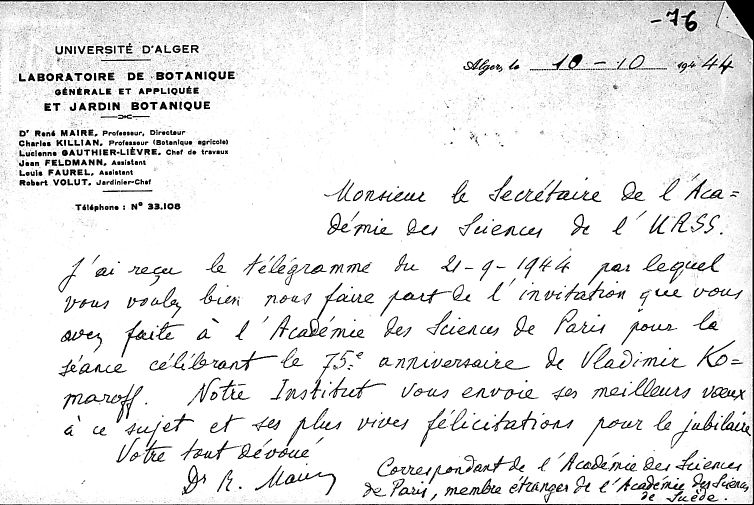 -76
UNIVERSITÉ D'ALGER
LABORATOIRE DE BOTANIQUE
GÉNÉRALE ET APPLIQUÉE
ET JARDIN BOTANIQUE
Dr René MAIRE, Professeur, Directeur
Charles KILLIAN, Professeur (Botanique agricole)
Lucienne GAUTHIER-LIÈVRE, Chef de travaux
Jean FELDMANN, Assistant
Louis FAUREL, Assistant
Robert VOLUT, Jardinier-Chef
Téléphone : N° 33.108
Alger, le 10 - 10 194 44
Monsieur le Secrétaire de l'Aca-
démie des Sciences de l'URSS.
J'ai reçu le télégramme du 21-9-1944 par lequel
vous voulez bien nous faire part de l'invitation que vous
avez faite à l'Académie des Sciences de Paris pour la
séance célébrant le 75e anniversaire de Vladimir Ko-
maroff. Notre Institut vous envoie ses meilleurs vœux
à ce sujet et ses plus vives félicitations pour le jubilaire
Votre tout dévoué
Dr R. Maire
Correspondant de l'Académie des Sciences
de Paris, membre étranger de l'Académie des Sciences
de Suède.